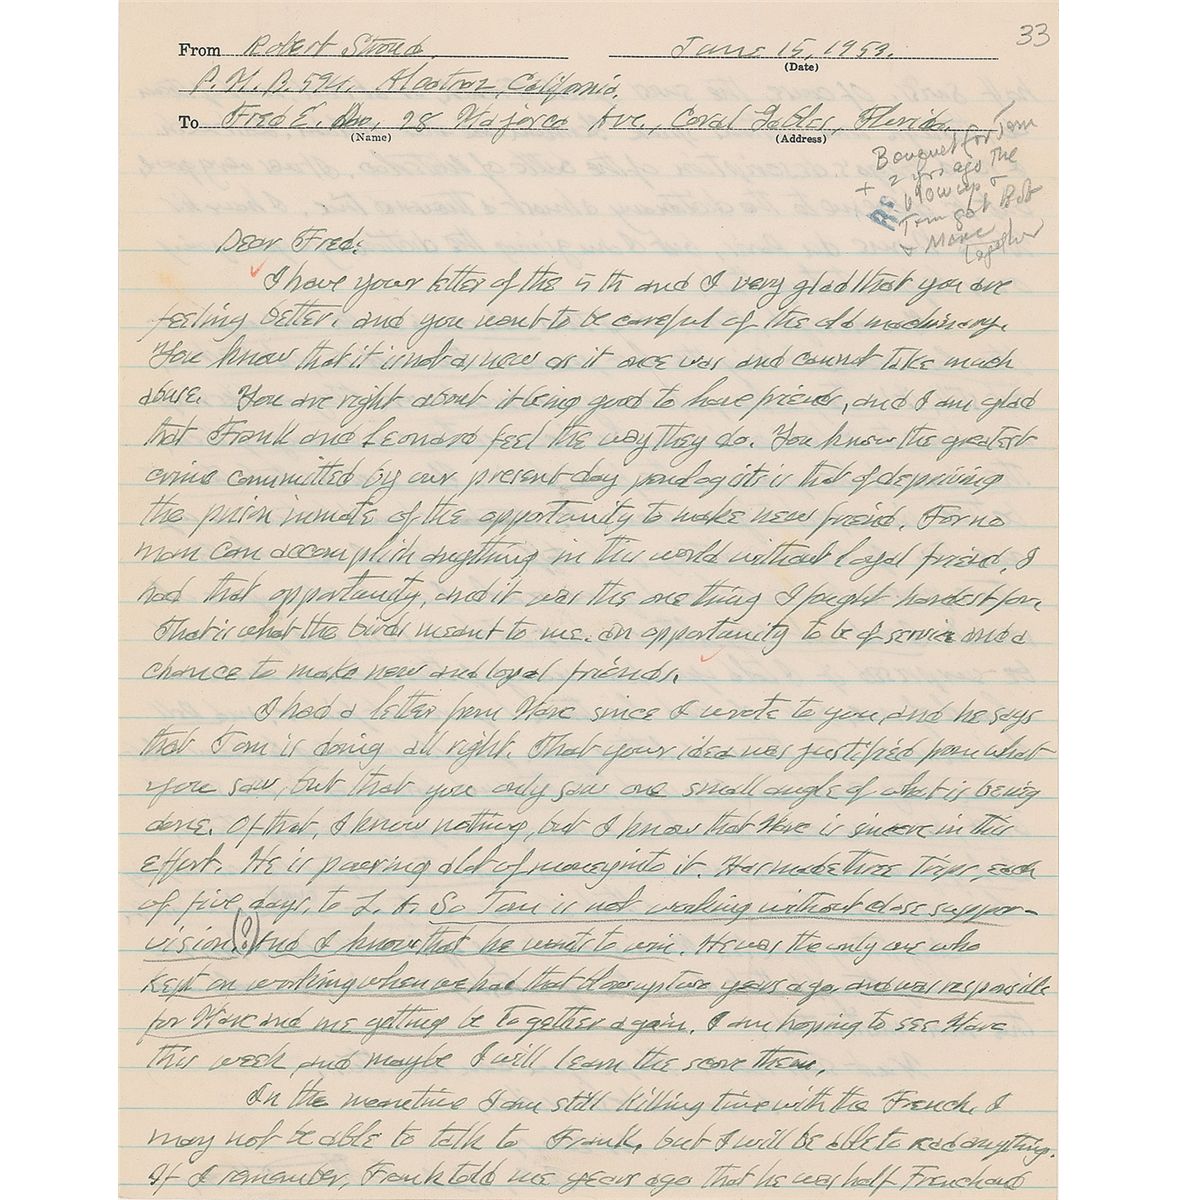 33
From Robert Stroud, June 15, 1953.
(Date)
P. M. B. 594. Alcatraz, California.
To Fred E. 28 Majorca Ave, Coral Gables, Florida.
(Name) (Address)
Bouquet for Tom
+ 2 yrs ago the
Re blow up +
Tom got Bob
+ Marc
together
Dear Fred:
I have your letter of the 5th and I very glad that you are
feeling better. and you want to be careful of the old machinary.
You know that it is not as new as it once was and cannot take much
abuse. You are right about it being good to have friends, and I am glad
that Frank and Leonard feel the way they do. You know the greatest
crime committed by our present-day penologists is that of depriving
the prison inmate of the opportunity to make new friend. For no
man can accomplish anything in this world without loyal friend. I
had that opportunity, and it was the one thing I fought hardest for.
That is what the birds meant to me. an opportunity to be of service and a
chance to make new and loyal friends.
I had a letter from Marc since I wrote to you, and he says
that Tom is doing all right. That your idea was justified from what
you saw, but that you only saw one small angle of what is being
done. Of that, I know nothing, but I know that Marc is sincere in this
effort. He is pouring a lot of money into it. Has made three trips, each
of five days, to L. A. So Tom is not working without close supper-
vision (?) And I know that he wants to win. He was the only one who
kept on working when we had that blowup two years ago and was responsible
for Marc and me getting be together again. I am hoping to see Marc
this week and maybe I will learn the score then.
In the meantime I am still killing time with the French. I
may not be able to talk to Frank, but I will be able to read anything.
If I remember, Frank told me years ago that he was half French and